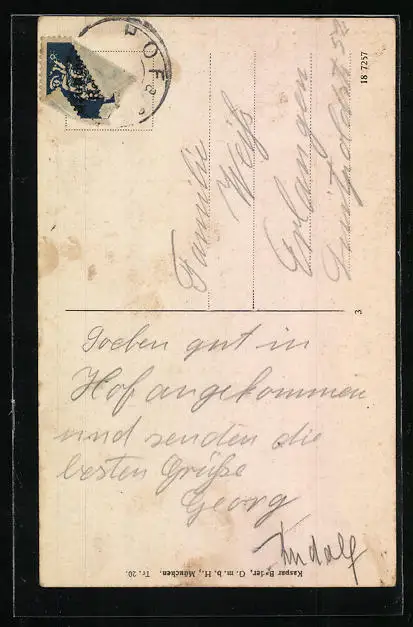 HOF
Familie
Weiß
Erlangen
Luitpoldstr 52
18 7257
3
Soeben gut in
Hof angekommen
und senden die
besten Grüße
Georg
Rudolf
Kaspar Bader, G. m. b. H., München. Tr. 20.